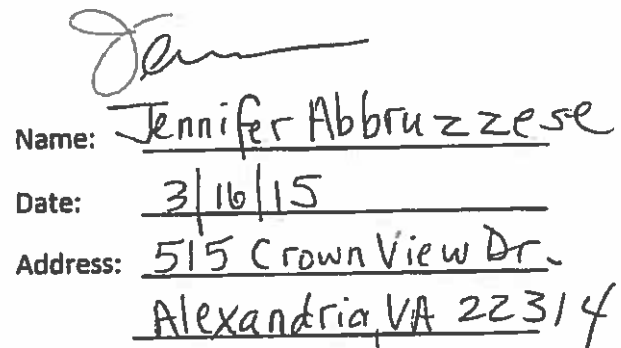 Jen
Name: Jennifer Abbruzzese
Date: 3/16/15
Address: 515 Crown View Dr.
Alexandria, VA 22314